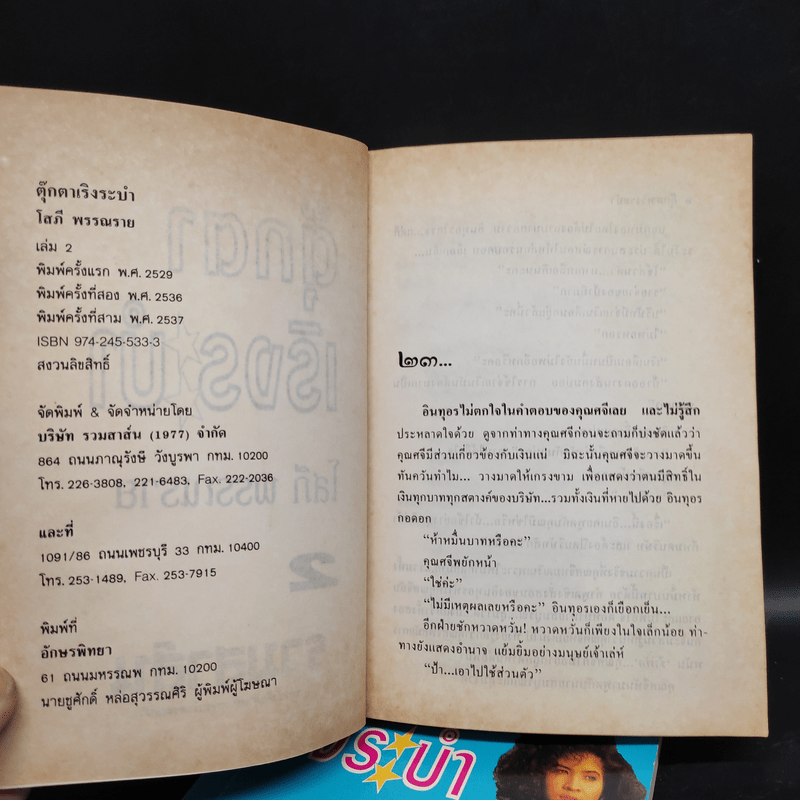 ตุ๊กตาเริงระบำ
โสภี พรรณราย
เล่ม 2
พิมพ์ครั้งแรก พ.ศ. 2529
พิมพ์ครั้งที่สอง พ.ศ. 2536
พิมพ์ครั้งที่สาม พ.ศ. 2537
ISBN 974-245-533-3
สงวนลิขสิทธิ์
จัดพิมพ์ & จัดจำหน่ายโดย
บริษัท รวมสาส์น (1977) จำกัด
864 ถนนภาณุรังษี วังบูรพา กทม. 10200
โทร. 226-3808, 221-6483, Fax. 222-2036
และที่
1091/86 ถนนเพชรบุรี 33 กทม. 10400
โทร. 253-1489, Fax. 253-7915
พิมพ์ที่
อักษรพิทยา
61 ถนนมหรรณพ กทม. 10200
นายชูศักดิ์ หล่อสุวรรณศิริ ผู้พิมพ์ผู้โฆษณา
๒๓...
อินทุอรไม่ตกใจในคำตอบของคุณศจีเลย และไม่รู้สึก
ประหลาดใจด้วย ดูจากท่าทางคุณศจีก่อนจะถามก็บ่งชัดแล้วว่า
คุณศจีมีส่วนเกี่ยวข้องกับเงินแน่ มิฉะนั้นคุณศจีจะวางมาดขึ้น
ทันควันทำไม... วางมาดให้เกรงขาม เพื่อแสดงว่าตนมีสิทธิ์ใน
เงินทุกบาททุกสตางค์ของบริษัท...รวมทั้งเงินที่หายไปด้วย อินทุอร
กอดอก
“ห้าหมื่นบาทหรือคะ”
คุณศจีพยักหน้า
“ใช่ค่ะ”
“ไม่มีเหตุผลเลยหรือคะ” อินทุอรเองก็เยือกเย็น...
อีกฝ่ายชักหวาดหวั่น! หวาดหวั่นก็เพียงในใจเล็กน้อย ท่า-
ทางยังแสดงอำนาจ แย้มยิ้มอย่างมนุษย์เจ้าเล่ห์
“ป้า...เอาไปใช้ส่วนตัว”
ระบำ